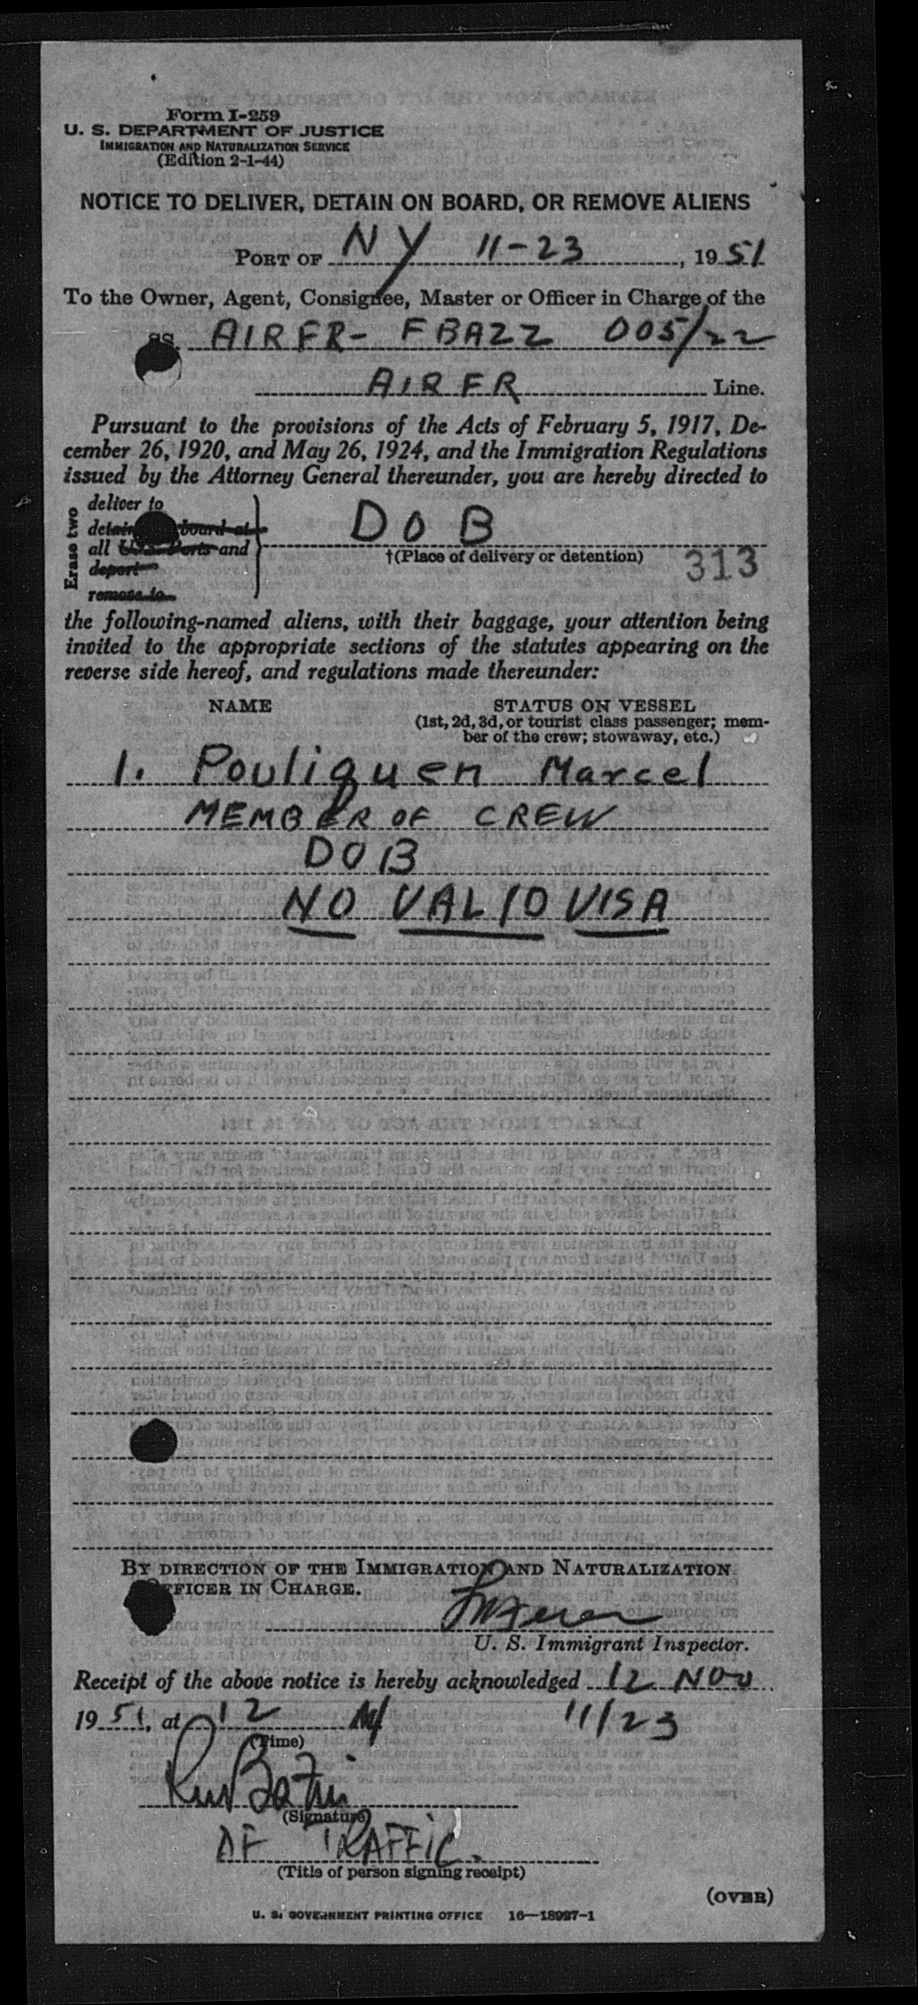 Form I-259
U. S. DEPARTMENT OF JUSTICE
IMMIGRATION AND NATURALIZATION SERVICE
(Edition 2-1-44)
NOTICE TO DELIVER, DETAIN ON BOARD, OR REMOVE ALIENS
PORT OF NY 11-23, 1951
To the Owner, Agent, Consignee, Master or Officer in Charge of the
SS. AIRFR- FBAZZ 005/22
AIRFR Line.
Pursuant to the provisions of the Acts of February 5, 1917, De-
cember 26, 1920, and May 26, 1924, and the Immigration Regulations
issued by the Attorney General thereunder, you are hereby directed to
Erase two
deliver to
detain board at
all U.S. Ports and
deport
remove to
DOB
†(Place of delivery or detention) 313
the following-named aliens, with their baggage, your attention being
invited to the appropriate sections of the statutes appearing on the
reverse side hereof, and regulations made thereunder:
NAME STATUS ON VESSEL
(1st, 2d, 3d, or tourist class passenger; mem-
ber of the crew; stowaway, etc.)
1. Pouliquen Marcel
MEMBER OF CREW
DOB
NO VALID VISA
BY DIRECTION OF THE IMMIGRATION AND NATURALIZATION
OFFICER IN CHARGE.
U. S. Immigrant Inspector.
Receipt of the above notice is hereby acknowledged 12 Nov
1951, at 12 M 11/23
(Time)
(Signature)
AF TRAFFIC.
(Title of person signing receipt)
(OVER)
U. S. GOVERNMENT PRINTING OFFICE 16—18997-1